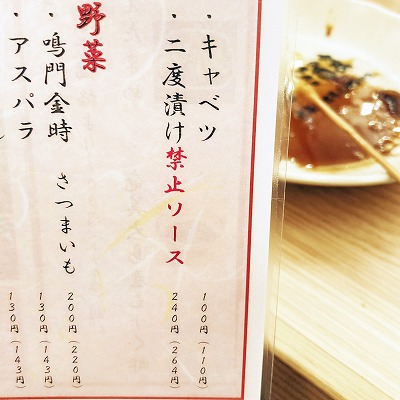 ・キャベツ 100円(110円)
・二度漬け禁止ソース 240円(264円)
野菜
さつまいも 200円(220円)
・鳴門金時 130円(143円)
・アスパラ 130円(143円)